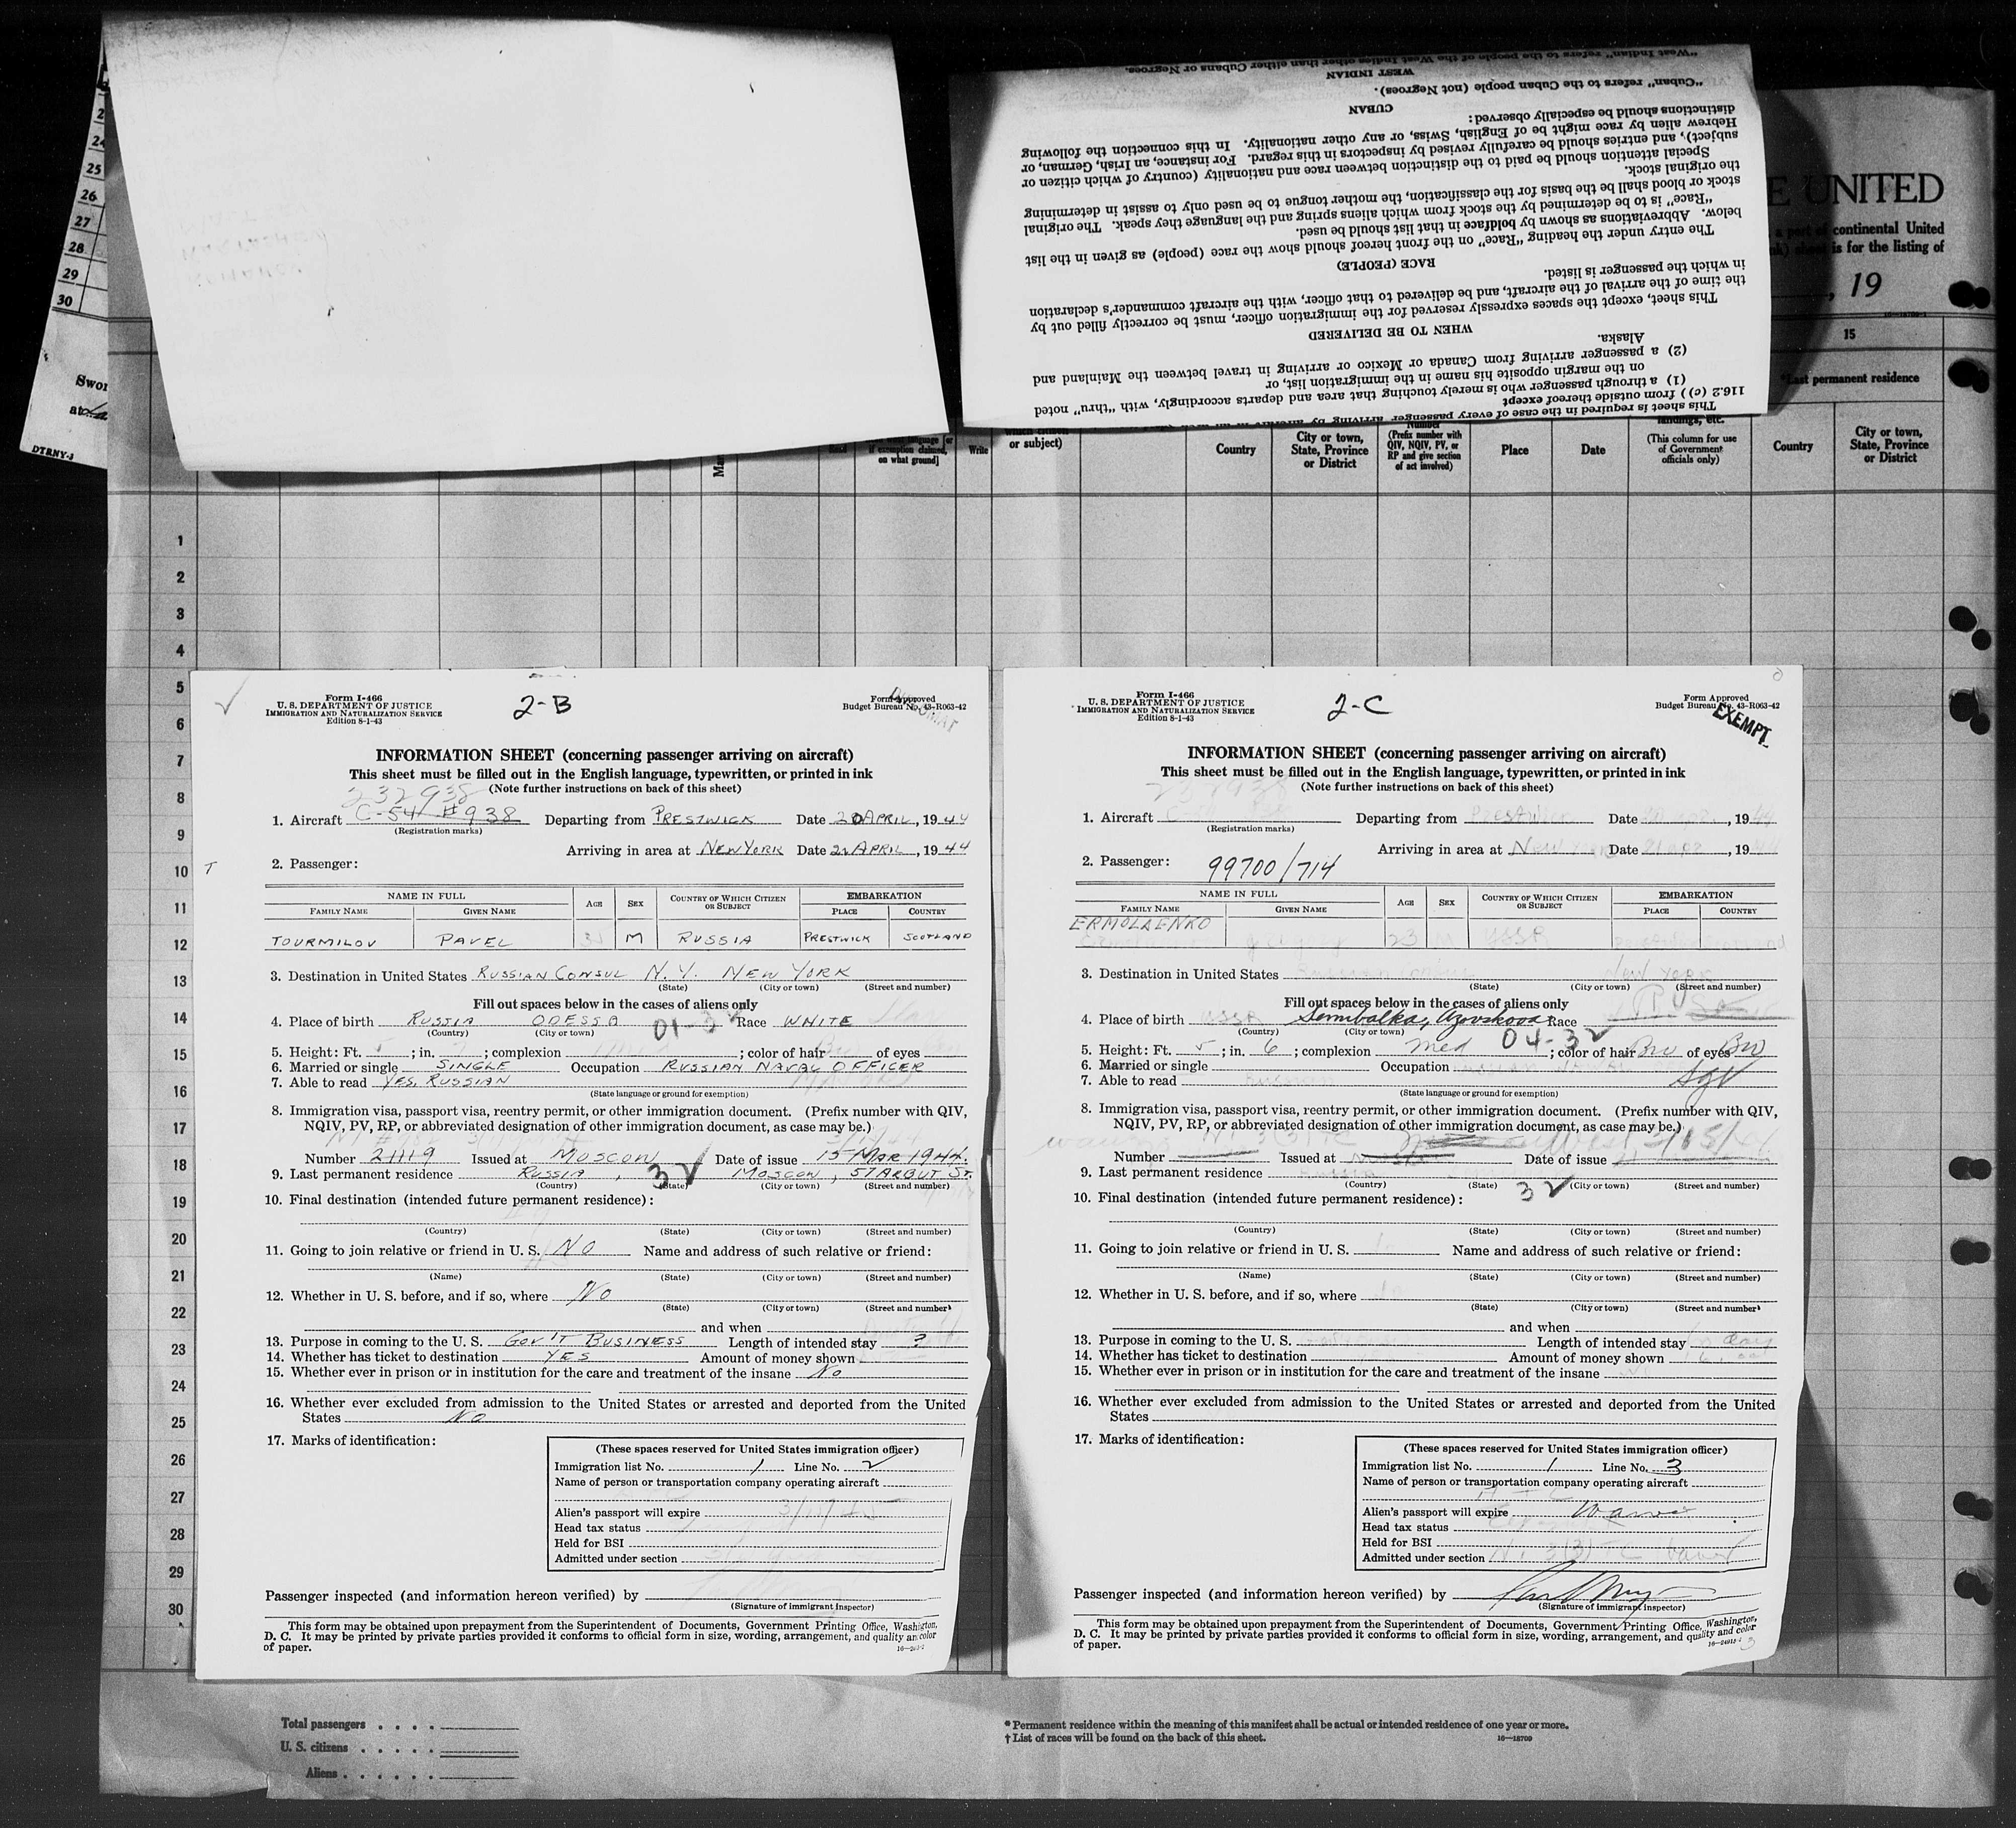 "West Indian" refers to the people of the West Indies other than either Cubans or Negroes.
WEST INDIAN
"Cuban" refers to the Cuban people (not Negroes).
CUBAN
distinctions should be especially observed:
Hebrew alien by race might be of English, Swiss, or any other nationality. In this connection the following
subject), and entries should be carefully revised by inspectors in this regard. For instance, an Irish, German, or
Special attention should be paid to the distinction between race and nationality (country of which citizen or
the original stock.
stock or blood shall be the basis for the classification, the mother tongue to be used only to assist in determining
"Race" is to be determined by the stock from which aliens spring and the language they speak. The original
below. Abbreviations as shown by boldface in that list should be used.
The entry under the heading "Race" on the front hereof should show the race (people) as given in the list
RACE (PEOPLE)
in which the passenger is listed.
the time of the arrival of the aircraft, and be delivered to that officer, with the aircraft commander's declaration
This sheet, except the spaces expressly reserved for the immigration officer, must be correctly filled out by
WHEN TO BE DELIVERED
Alaska.
(2) a passenger arriving from Canada or Mexico or arriving in travel between the Mainland and
on the margin opposite his name in the immigration list, or
(1) a through passenger who is merely touching that area and departs accordingly, with "thru" noted
116.2 (c) ) from outside thereof except
This sheet is required in the case of every passenger arriving by aircraft
E UNITED
continental United
is for the listing of
, 19
15
*Last permanent residence
24
25
26
27
28
29
30
Swor
at
DTRNY-3
on what ground]
Write
or subject)
Country
City or town,
State, Province
or District
Number
(Prefix number with
QIV, NQIV, PV, or
RP and give section
of act involved)
Place
Date
landings, etc.
(This column for use
of Government
officials only)
Country
City or town,
State, Province
or District
1
2
3
4
5
6
7
8
9
10
11
12
13
14
15
16
17
18
19
20
21
22
23
24
25
26
27
28
29
30
Form I-466
U. S. DEPARTMENT OF JUSTICE
IMMIGRATION AND NATURALIZATION SERVICE
Edition 8-1-43
2-B
Form Approved
Budget Bureau No. 43-R063-42
INFORMATION SHEET (concerning passenger arriving on aircraft)
This sheet must be filled out in the English language, typewritten, or printed in ink
(Note further instructions on back of this sheet)
232938
1. Aircraft C-54 #938 Departing from PRESTWICK Date 20 APRIL, 1944
(Registration marks)
Arriving in area at NEW YORK Date 21 APRIL, 1944
T
2. Passenger:
NAME IN FULL AGE SEX COUNTRY OF WHICH CITIZEN OR SUBJECT EMBARKATION
FAMILY NAME GIVEN NAME PLACE COUNTRY
TOURMILOV PAVEL M RUSSIA PRESTWICK SCOTLAND
3. Destination in United States RUSSIAN CONSUL N.Y. NEW YORK
(State) (City or town) (Street and number)
Fill out spaces below in the cases of aliens only
4. Place of birth RUSSIA ODESSA 01-32 Race WHITE
(Country) (City or town)
5. Height: Ft. 5; in. ; complexion ; color of hair of eyes
6. Married or single SINGLE Occupation RUSSIAN NAVAL OFFICER
7. Able to read YES, RUSSIAN
(State language or ground for exemption)
8. Immigration visa, passport visa, reentry permit, or other immigration document. (Prefix number with QIV,
NQIV, PV, RP, or abbreviated designation of other immigration document, as case may be.)
Number 21119 Issued at MOSCOW Date of issue 15 MAR 1944.
9. Last permanent residence RUSSIA, 32 MOSCOW, 57 ARBUT ST.
(Country) (State) (City or town) (Street and number)
10. Final destination (intended future permanent residence):
(Country) (State) (City or town) (Street and number)
11. Going to join relative or friend in U. S. NO Name and address of such relative or friend:
(Name) (State) (City or town) (Street and number)
12. Whether in U. S. before, and if so, where NO
(State) (City or town) (Street and number)
and when
13. Purpose in coming to the U. S. GOV'T BUSINESS Length of intended stay ?
14. Whether has ticket to destination YES Amount of money shown
15. Whether ever in prison or in institution for the care and treatment of the insane NO
16. Whether ever excluded from admission to the United States or arrested and deported from the United
States NO
17. Marks of identification:
(These spaces reserved for United States immigration officer)
Immigration list No. 1 Line No. 2
Name of person or transportation company operating aircraft
Alien's passport will expire 3/15/45
Head tax status
Held for BSI
Admitted under section
Passenger inspected (and information hereon verified) by
(Signature of immigrant inspector)
This form may be obtained upon prepayment from the Superintendent of Documents, Government Printing Office, Washington,
D. C. It may be printed by private parties provided it conforms to official form in size, wording, arrangement, and quality and color
of paper.
Form I-466
U. S. DEPARTMENT OF JUSTICE
IMMIGRATION AND NATURALIZATION SERVICE
Edition 8-1-43
2-C
Form Approved
Budget Bureau No. 43-R063-42
EXEMPT
INFORMATION SHEET (concerning passenger arriving on aircraft)
This sheet must be filled out in the English language, typewritten, or printed in ink
(Note further instructions on back of this sheet)
232938
1. Aircraft Departing from Prestwick Date , 1944
(Registration marks)
Arriving in area at New York Date 21 apr, 19
2. Passenger: 99700/714
NAME IN FULL AGE SEX COUNTRY OF WHICH CITIZEN OR SUBJECT EMBARKATION
FAMILY NAME GIVEN NAME PLACE COUNTRY
ERMOLAENKO 23 M USSR
3. Destination in United States New York
(State) (City or town) (Street and number)
Fill out spaces below in the cases of aliens only
4. Place of birth USSR Semibalka, Azovskova Race
(Country) (City or town)
04-32
5. Height: Ft. 5; in. 6; complexion med; color of hair Bro of eyes Bro
6. Married or single Occupation
7. Able to read
(State language or ground for exemption)
8. Immigration visa, passport visa, reentry permit, or other immigration document. (Prefix number with QIV,
NQIV, PV, RP, or abbreviated designation of other immigration document, as case may be.)
Number Issued at Date of issue
9. Last permanent residence Russia
(Country) (State) (City or town) (Street and number)
32
10. Final destination (intended future permanent residence):
(Country) (State) (City or town) (Street and number)
11. Going to join relative or friend in U. S. Name and address of such relative or friend:
(Name) (State) (City or town) (Street and number)
12. Whether in U. S. before, and if so, where
(State) (City or town) (Street and number)
and when
13. Purpose in coming to the U. S. Length of intended stay day
14. Whether has ticket to destination Amount of money shown
15. Whether ever in prison or in institution for the care and treatment of the insane
16. Whether ever excluded from admission to the United States or arrested and deported from the United
States
17. Marks of identification:
(These spaces reserved for United States immigration officer)
Immigration list No. 1 Line No. 3
Name of person or transportation company operating aircraft
Alien's passport will expire
Head tax status
Held for BSI
Admitted under section
Passenger inspected (and information hereon verified) by
(Signature of immigrant inspector)
This form may be obtained upon prepayment from the Superintendent of Documents, Government Printing Office, Washington,
D. C. It may be printed by private parties provided it conforms to official form in size, wording, arrangement, and quality and color
of paper.
Total passengers
U. S. citizens
Aliens
* Permanent residence within the meaning of this manifest shall be actual or intended residence of one year or more.
† List of races will be found on the back of this sheet.
16—18709